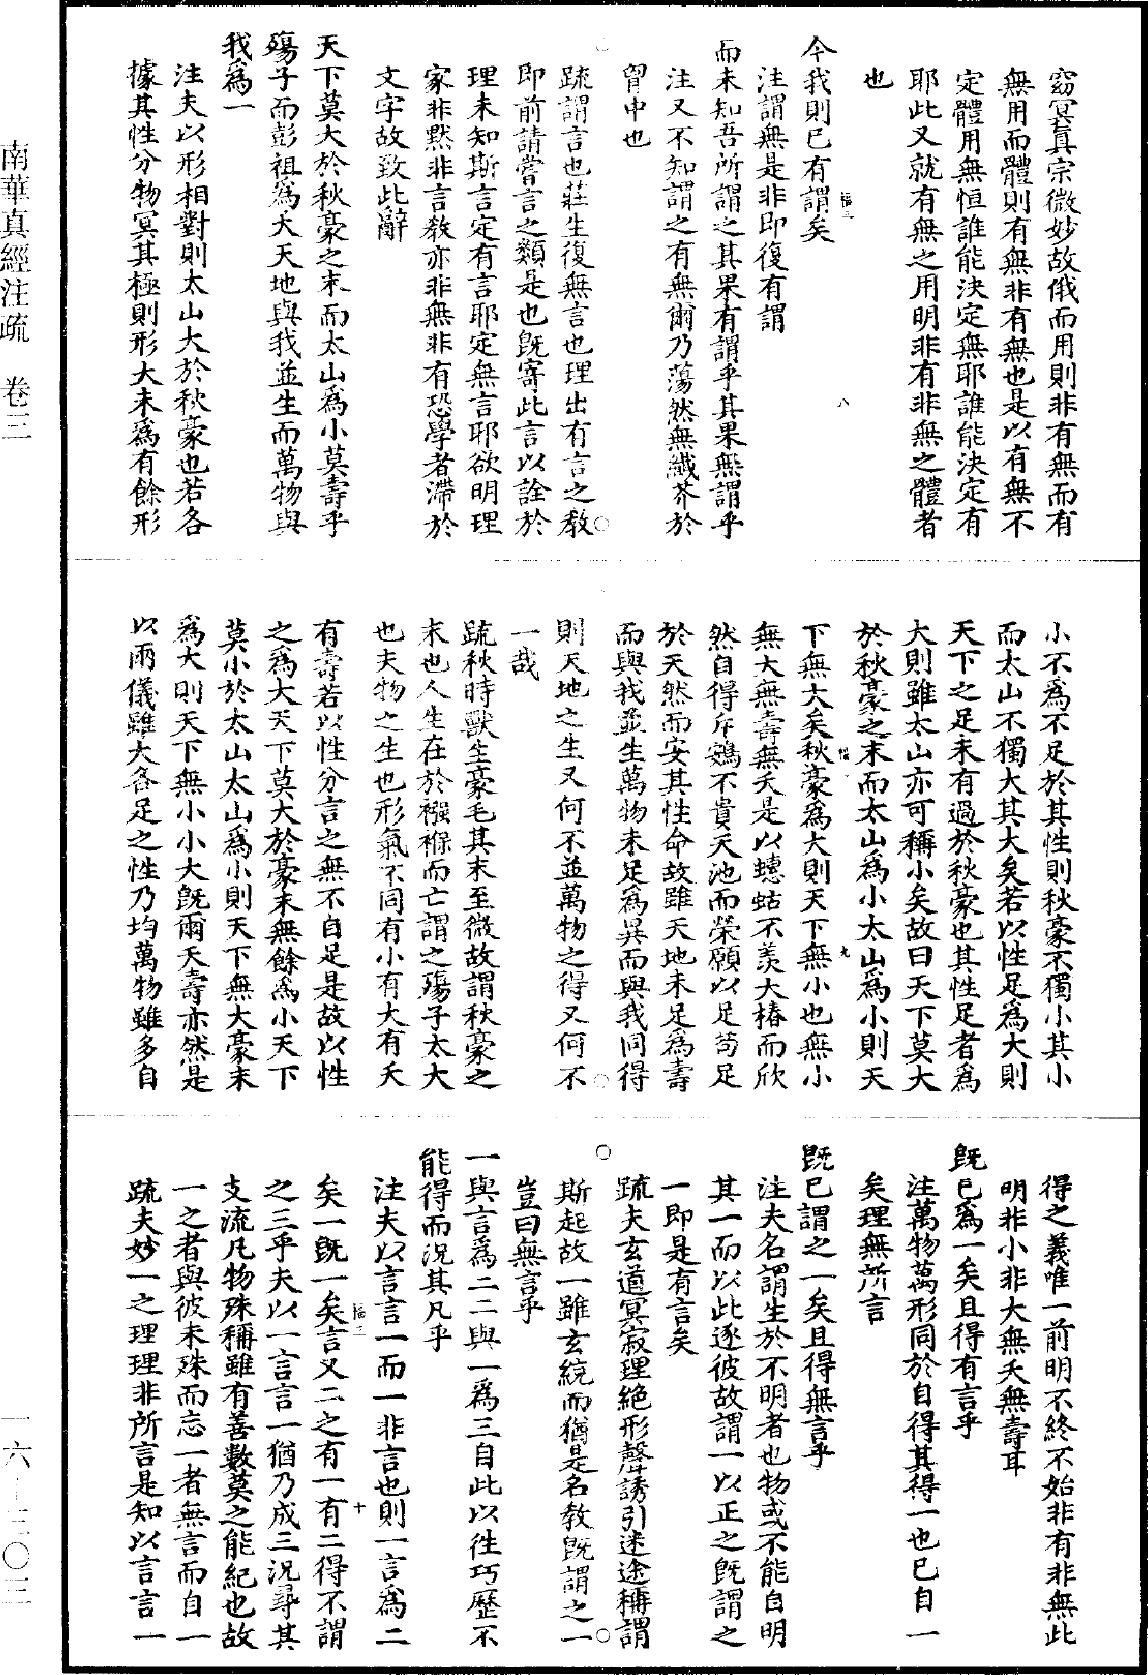 窈冥真宗微妙故俄而用則非有無而有
無用而體則有無非有無也是以有無不
定體用無恒誰能決定無耶誰能決定有
耶此又就有無之用明非有非無之體者
也
今我則已有謂矣
注謂無是非即復有謂
而未知吾所謂之其果有謂乎其果無謂乎
注又不知謂之有無爾乃蕩然無纖芥於
胷中也
疏謂言也莊生復無言也理出有言之教
即前請嘗言之類是也既寄此言以詮於
理未知斯言定有言耶定無言耶欲明理
家非默非言教亦非無非有恐學者滯於
文字故致此辭
天下莫大於秋豪之末而太山爲小莫壽乎
殤子而彭祖爲夭天地與我並生而萬物與
我爲一
注夫以形相對則太山大於秋豪也若各
據其性分物冥其極則形大未爲有餘形
小不爲不足於其性則秋豪不獨小其小
而太山不獨大其大矣若以性足爲大則
天下之足未有過於秋豪也其性足者爲
大則雖太山亦可稱小矣故曰天下莫大
於秋豪之末而太山爲小太山爲小則天
下無大矣秋豪爲大則天下無小也無小
無大無壽無夭是以蟪蛄不羨大椿而欣
然自得斥鴳不貴天池而榮願以足苟足
於天然而安其性命故雖天地未足爲壽
而與我並生萬物未足爲異而與我同得
則天地之生又何不並萬物之得又何不
一哉
疏秋時獸生豪毛其末至微故謂秋豪之
末也人生在於襁褓而亡謂之殤子太大
也夫物之生也形氣不同有小有大有夭
有壽若以性分言之無不自足是故以性
之爲大天下莫大於豪末無餘爲小天下
莫小於太山太山爲小則天下無大豪末
爲大則天下無小小大既爾夭壽亦然是
以兩儀雖大各足之性乃均萬物雖多自
得之義唯一前明不終不始非有非無此
明非小非大無夭無壽耳
既已爲一矣且得有言乎
注萬物萬形同於自得其得一也已自一
矣理無所言
既已謂之一矣且得無言乎
注夫名謂生於不明者也物或不能自明
其一而以此逐彼故謂一以正之既謂之
一即是有言矣
疏夫玄道冥寂理絕形聲誘引迷途稱謂
斯起故一雖玄統而猶是名教既謂之一
豈曰無言乎
一與言爲二二與一爲三自此以往巧歷不
能得而況其凡乎
注夫以言言一而一非言也則一言爲二
矣一既一矣言又二之有一有二得不謂
之三乎夫以一言言一猶乃成三況尋其
支流凡物殊稱雖有善數莫之能紀也故
一之者與彼未殊而忘一者無言而自一
疏夫妙一之理理非所言是知以言言一
南華真經注疏 卷三
一六—三〇三